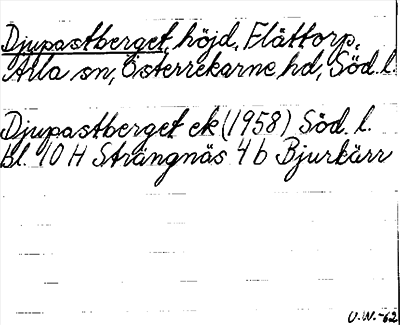 Djupastberget, höjd, Flättorp,
Ärla sn, Österrekarne hd, Söd. l.
Djupastberget ek (1958) Söd. l.
Bl. 10 H Strängnäs 4 b Bjurkärr
U.W.-62